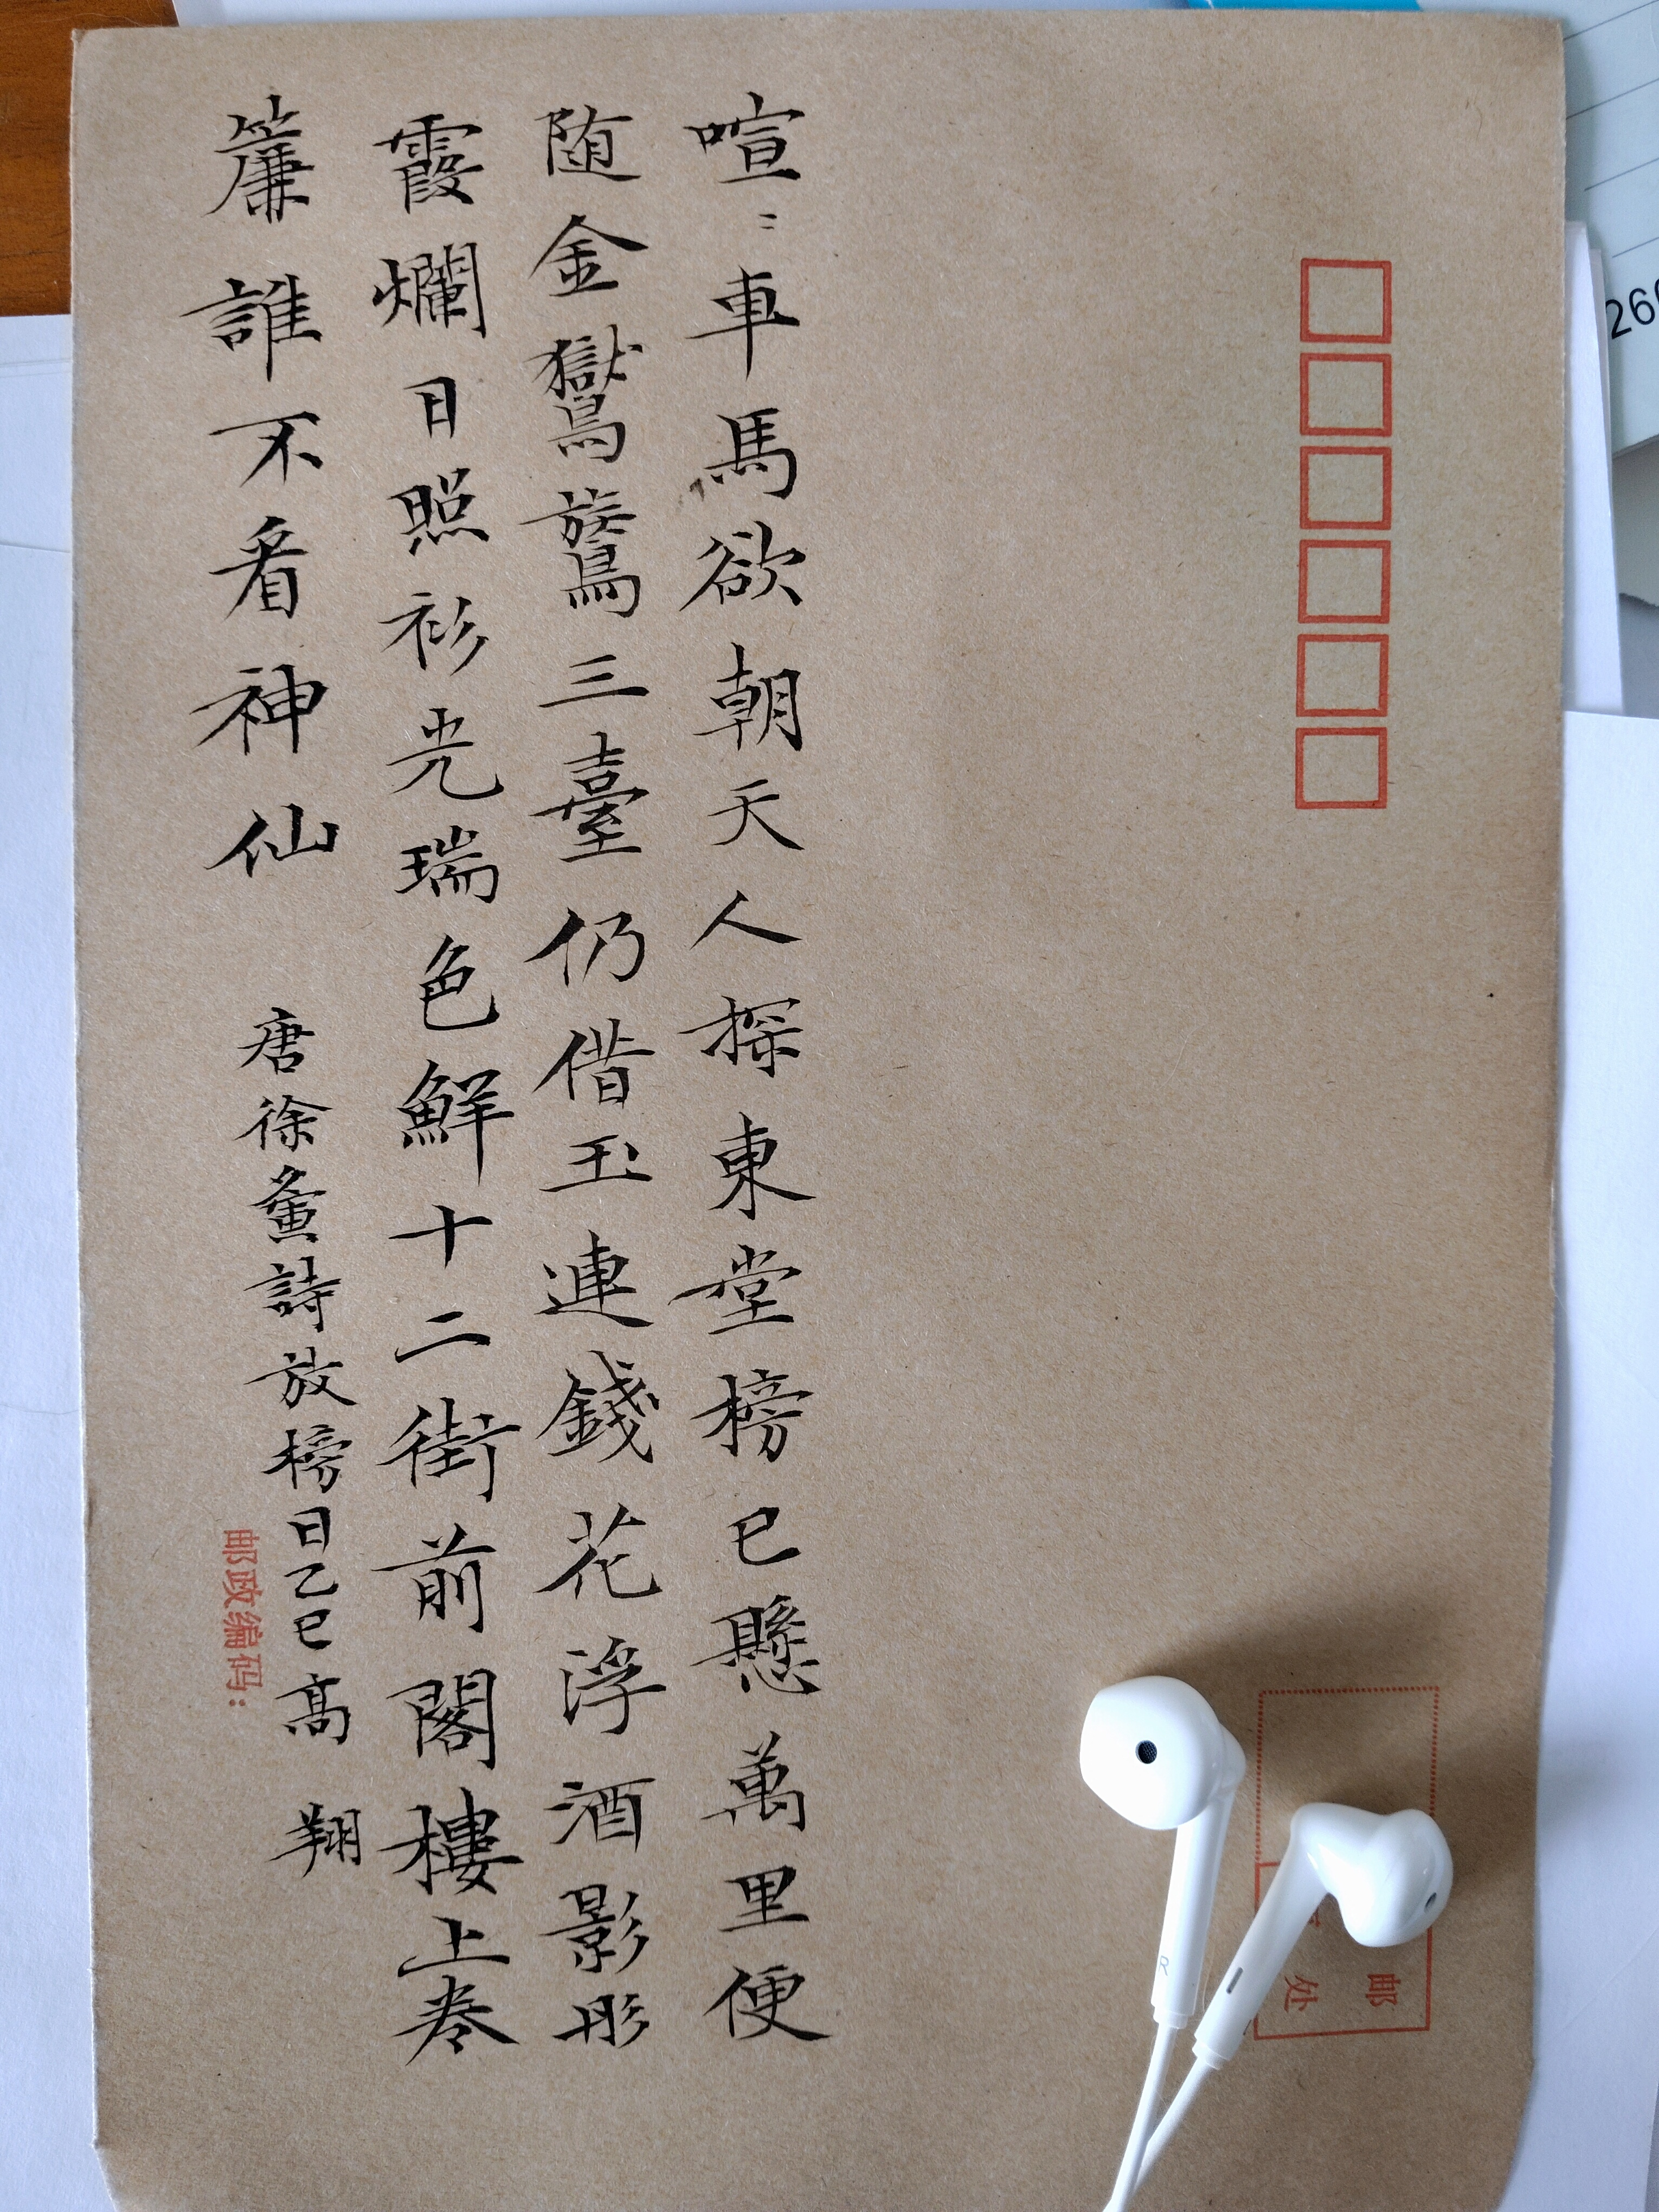 喧〻車馬欲朝天人探東堂榜已懸萬里便
随金鸑鷟三臺仍借玉連錢花浮酒影彤
霞爛日照衫光瑞色鮮十二街前閣樓上卷
簾誰不看神仙
唐徐夤詩放榜日乙巳高翔
邮政编码:
邮
处
R
260